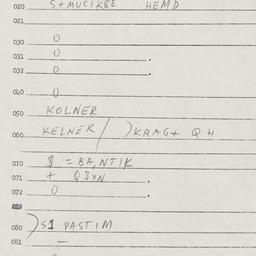 020 S+MUCIK8E HEMD
021
030 0
031 0 .
032 0 .
040 0
050 KOLNER
060 KELNER/ )KRAG+ Q H
070 $ =BA,NTIK
071 + QSYN .
072 0 .
080 )S1 PASTIM
081 –